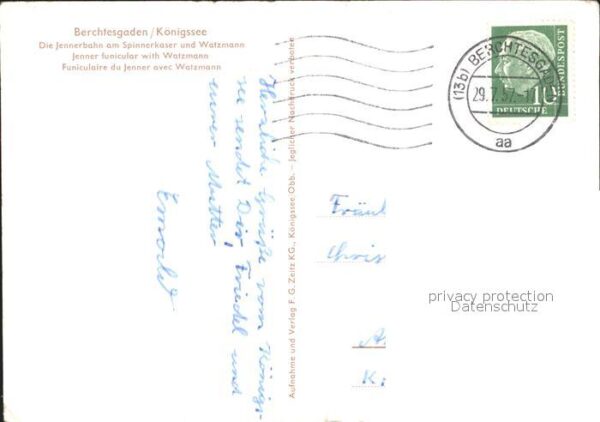 Berchtesgaden / Königssee
Die Jennerbahn am Spinnerkaser und Watzmann
Jenner funicular with Watzmann
Funiculaire du Jenner avec Watzmann
(13b) BERCHTESGADEN
29.7.57.-1
aa
10
DEUTSCHE
BUNDESPOST
Herzliche Grüße vom Königs-
see sendet Dir, Friedel und
unser Mutter,
Aufnahme und Verlag F. G. Zeitz KG., Königssee/Obb. – Jeglicher Nachdruck verboten
Fräul
Chris
A
K.
privacy protection
Datenschutz